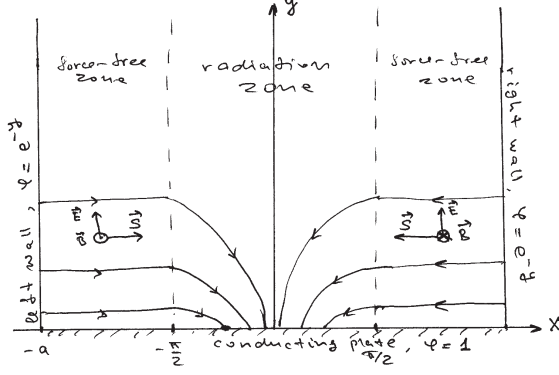 y
force-free
zone
radiation
zone
force-free
zone
left wall, φ = e^-y
right wall, φ = e^-y
E
B
S
S
E
B
x
-a
-π/2
conducting plate, φ = 1
π/2